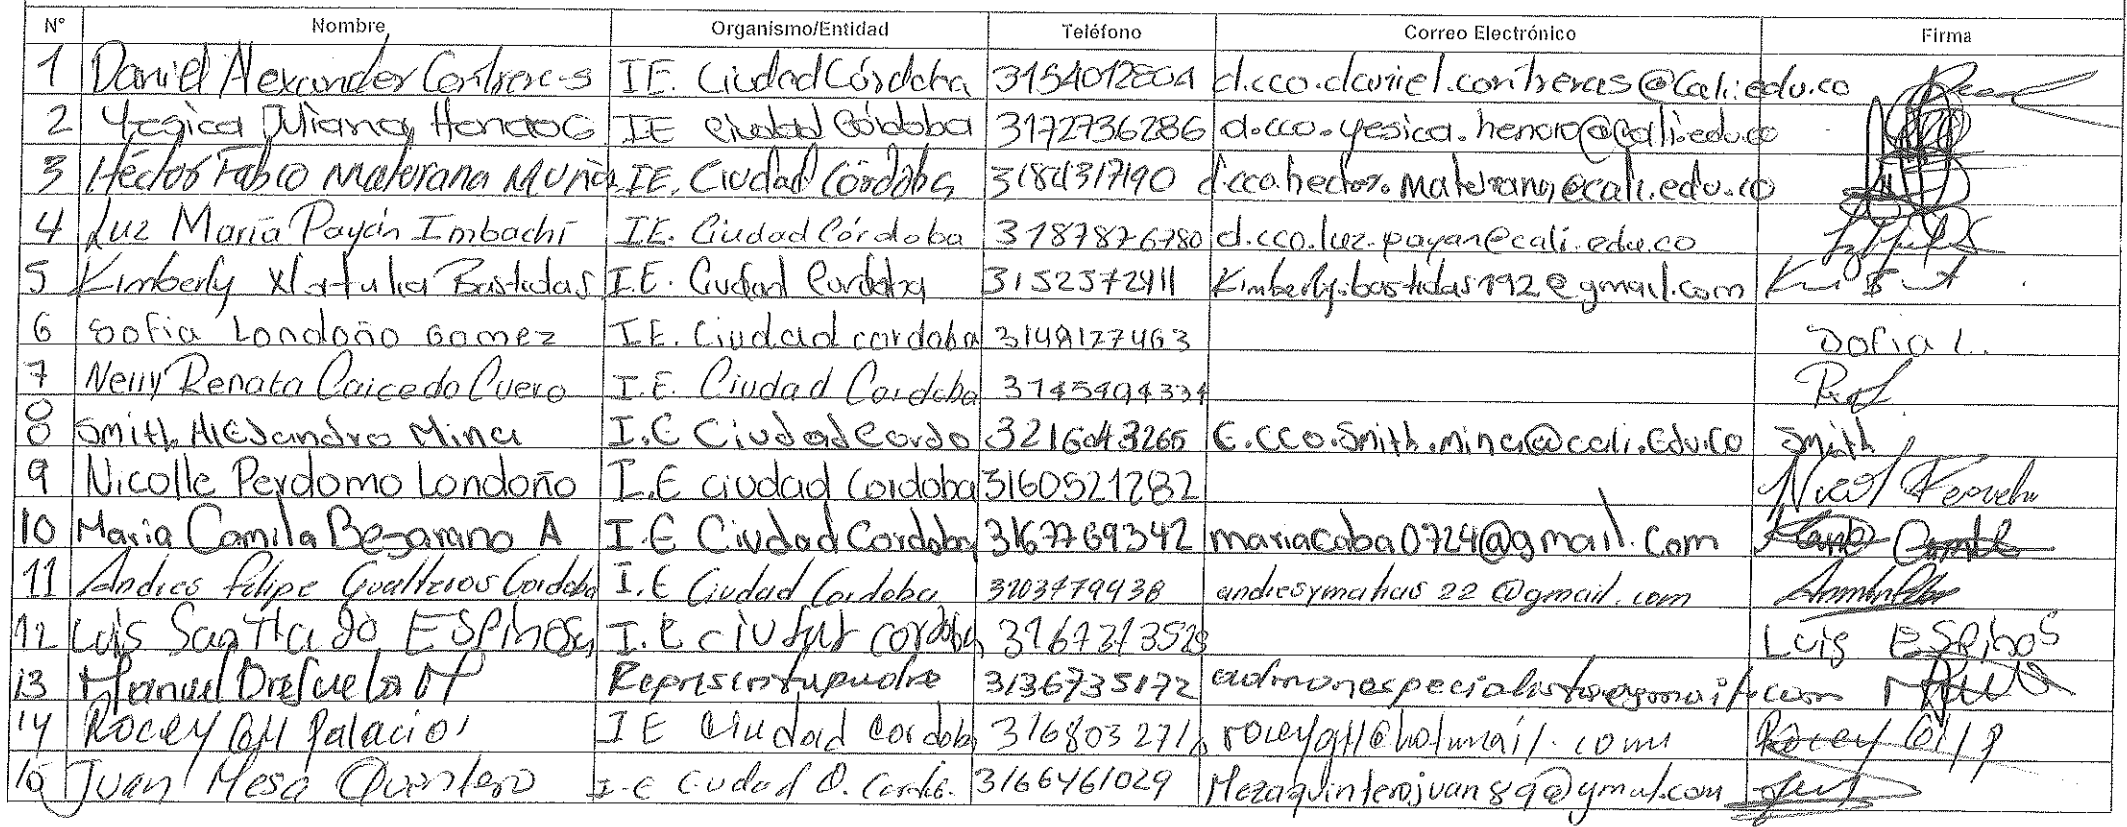 N° Nombre Organismo/Entidad Teléfono Correo Electrónico Firma
1 Daniel Alexander Contreras I.E. Ciudad Córdoba 3154012804 d.cco.daniel.contreras@cali.edu.co
2 Yesica Juliana Henao G IE Ciudad Córdoba 3172736286 d.cco.yesica.henao@cali.edu.co
3 Héctor Fabio Maturana Muñoz IE. Ciudad Córdoba 3184317190 d.cco.hector.maturana@cali.edu.co
4 Luz María Payán Imbachí I.E. Ciudad Córdoba 3187876780 d.cco.luz.payan@cali.edu.co
5 Kimberly Bastidas I.E. Ciudad Cordoba 3152572411 Kimberly.bastidas192@gmail.com
6 Sofia Londoño Gomez I.E. Ciudad cordoba 3149127463 Sofia L.
7 Nelly Renata Caicedo Cuero I.E. Ciudad Cordoba 3145494334
8 Smith Alesandro Mina I.C Ciudad Cordo 3216043265 E.cco.Smith.mina@cali.edu.co Smith
9 Nicolle Perdomo Londoño I.E ciudad Cordoba 3160521282
10 Maria Camila Bejarano A I.E Ciudad Cordoba 3167769342 mariacaba0724@gmail.com
11 Andres Felipe Gualteros Cordoba I.E Ciudad Cordoba 3203479938 andresymatias22@gmail.com
12 Luis Santiago Espinosa I.E Cordoba 3167273528 Luis Espinos
13 Manuel Orejuela M 3136735172
14 Rocey Gil Palacios I E Ciudad Cordoba 316803271 roceygil@hotmail.com Rocey Gil P
15 Juan Mesa Quintero I-E Ciudad D. 3166461029 Mezaquinterojuan89@gmal.com